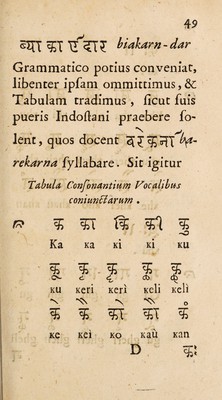 49
ब्याकार्णदार biakarn-dar
Grammatico potius conveniat,
libenter ipſam ommittimus, &
Tabulam tradimus, ſicut ſuis
pueris Indoſtani praebere ſo-
lent, quos docent बारेकर्ना ba-
rekarna ſyllabare. Sit igitur
Tabula Conſonantium Vocalibus
coniunctarum.
क का कि की कु
Ka ka ki ki ku
कू
ku keri keri keli keli
के कै को कौ कं
ke kei ko kaŭ kan
D कः